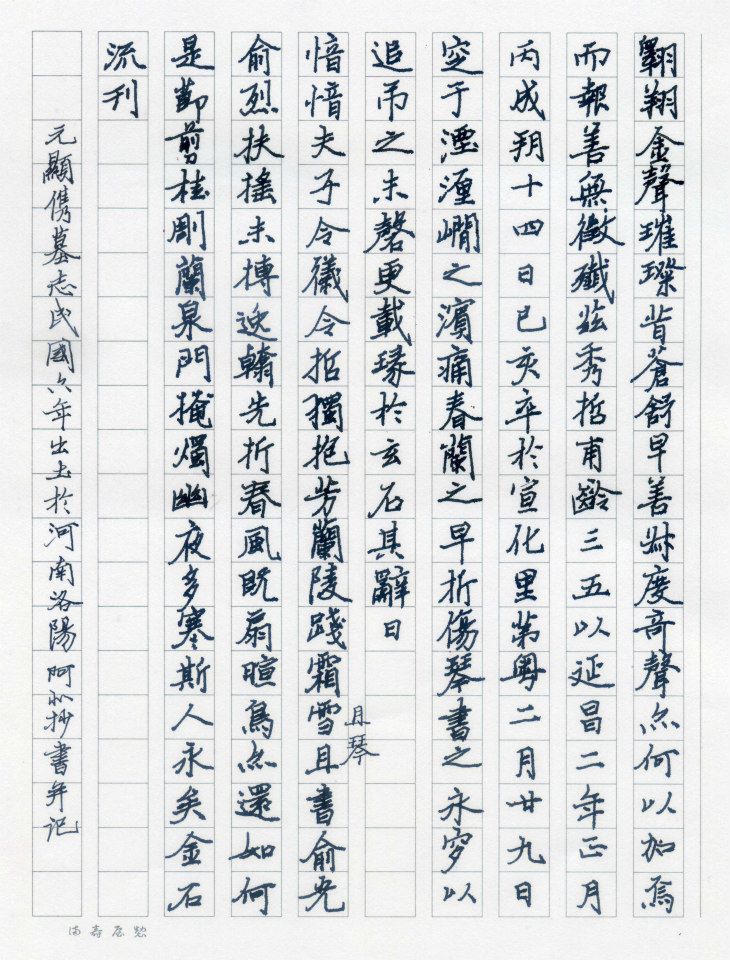 翱翔金聲璀璨昔蒼舒早善叔度奇聲亦何以加焉
而報善無徵殲茲秀哲甫齡三五以延昌二年正月
丙戌朔十四日己亥卒於宣化里第粵二月廿九日
窆于瀍澗之濱痛春蘭之早折傷琴書之永穸以
追弔之未磬更載琭於玄石其辭曰
且琴
愔愔夫子令儀令哲獨抱芳蘭陵踐霜雪且書俞光
俞烈扶搖未搏逸翰先折春風既扇暄鳥亦還如何
是節剪桂彫蘭泉門掩燭幽夜多寒斯人永矣金石
流刊
元顯儁墓志民國六年出土於河南洛陽 阿抄書并記